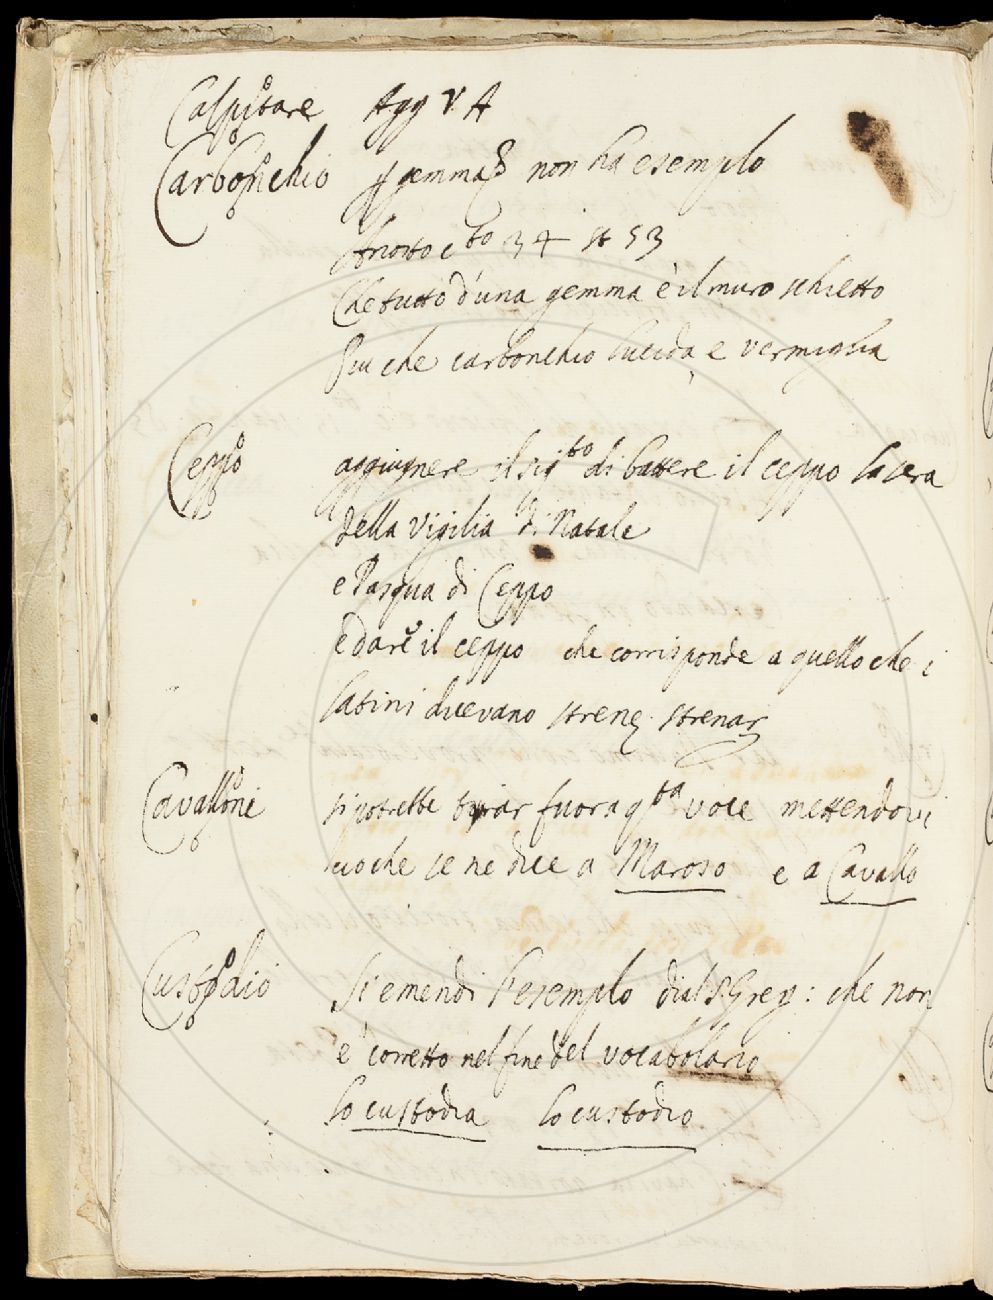 Calpitare Agg v A
Carbonchio gemma non ha esempio
Ariosto c.to 34 st 53
Che tutto d'una gemma è il muro schietto
Piu che carbonchio lucida e vermiglia
Ceppo aggiugnere il sig.to di battere il ceppo la sera
della vigilia di Natale
e Pasqua di Ceppo
e dare il ceppo che corrisponde a quello che i
latini dicevano strenę strenar
Cavalloni si potrebbe tirar fuora q.ta voce mettendovi
cio che se ne dice a Maroso e a Cavallo
Custodio Si emendi l'esempio di S Greg: che non
è corretto nel fine del vocabolario
lo custodia lo custodio